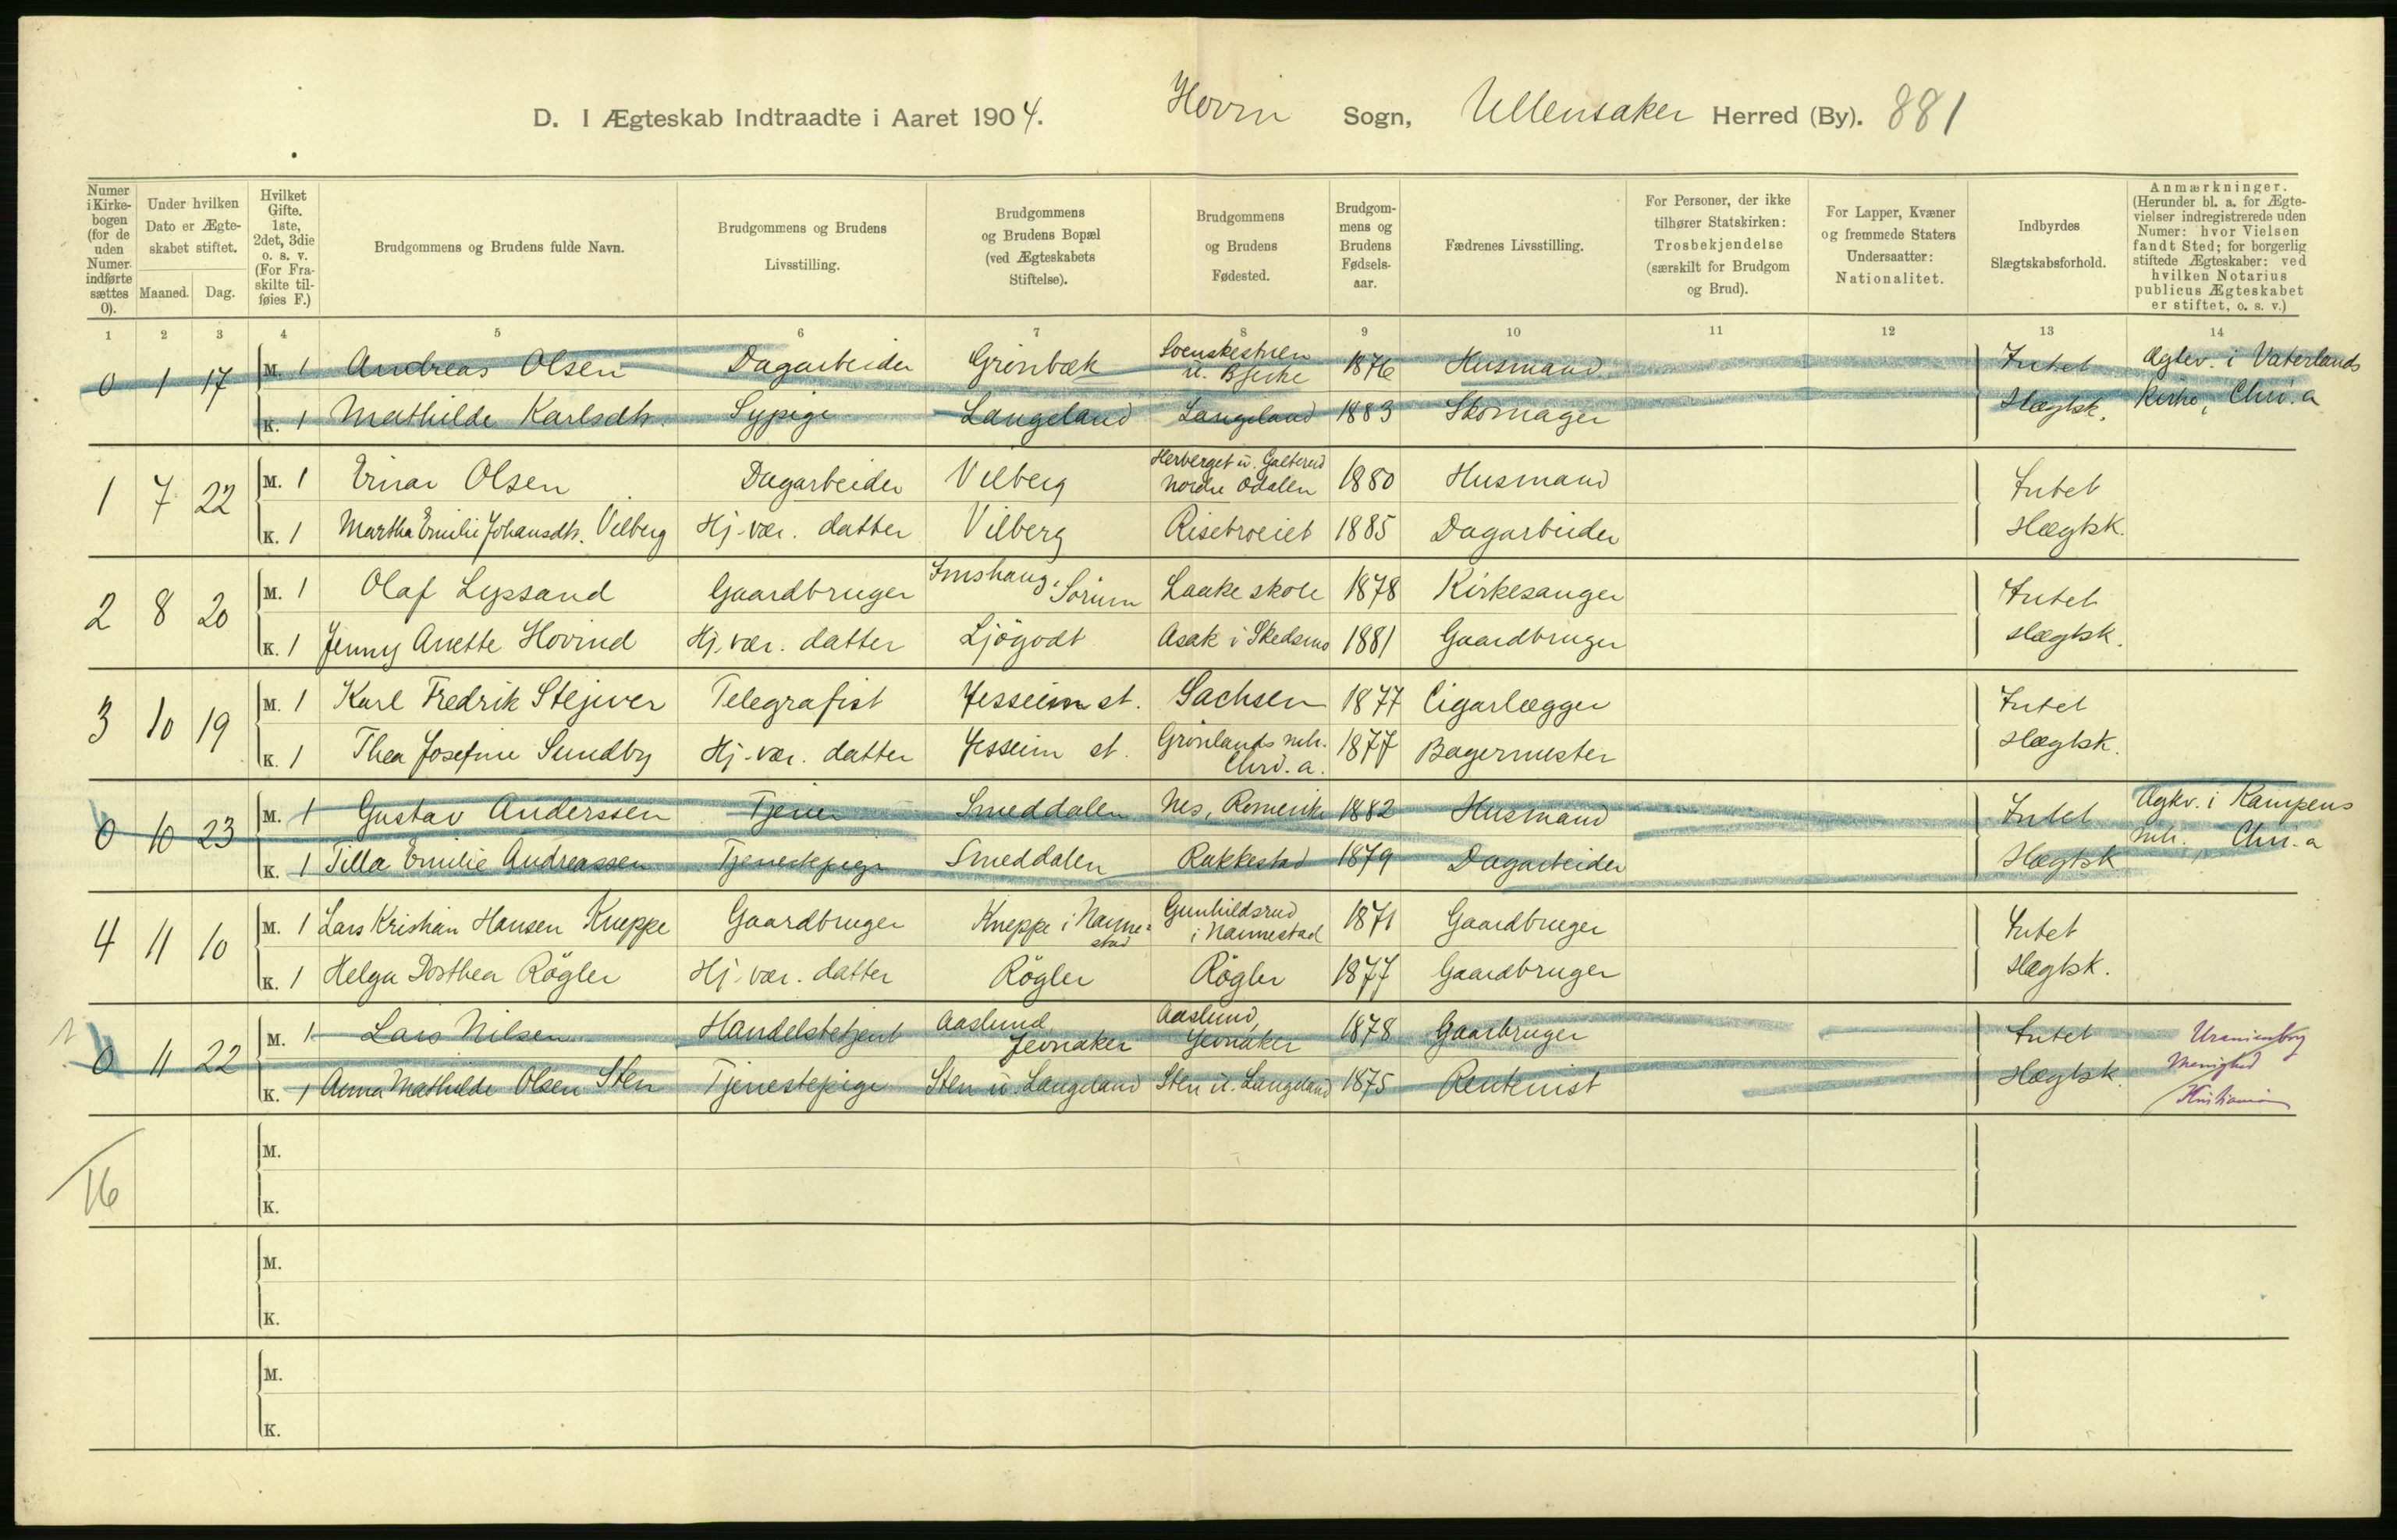 D. I Ægteskab Indtraadte i Aaret 1904. Hovin Sogn, Ullensaker Herred (By). 881
Numer i Kirkebogen (for de uden Numer indførte sættes 0).
Under hvilken Dato er Ægteskabet stiftet.
Maaned. Dag.
Hvilket Gifte. 1ste, 2det, 3die o. s. v. (For Fraskilte tilføies F.)
Brudgommens og Brudens fulde Navn.
Brudgommens og Brudens Livsstilling.
Brudgommens og Brudens Bopæl (ved Ægteskabets Stiftelse).
Brudgommens og Brudens Fødested.
Brudgommens og Brudens Fødselsaar.
Fædrenes Livsstilling.
For Personer, der ikke tilhører Statskirken: Trosbekjendelse (særskilt for Brudgom og Brud).
For Lapper, Kvæner og fremmede Staters Undersaatter: Nationalitet.
Indbyrdes Slægtskabsforhold.
Anmærkninger. (Herunder bl. a. for Ægtevielser indregistrerede uden Numer: hvor Vielsen fandt Sted; for borgerlig stiftede Ægteskaber: ved hvilken Notarius publicus Ægteskabet er stiftet, o. s. v.)
1 2 3 4 5 6 7 8 9 10 11 12 13 14
0 1 17 M. 1 Andreas Olsen Dagarbeider Grønbæk Svenskestuen u. Bjerke 1876 Husmand Intet Ægtev. i Vaterlands
K. 1 Mathilde Karlsdtr. Sypige Langeland Langeland 1883 Skomager Slægtsk. Kirke, Chri.a
1 7 22 M. 1 Einar Olsen Dagarbeider Vilberg Herberget u. Galterud Nordre Odalen 1880 Husmand Intet
K. 1 Martha Emilie Johansdtr. Vilberg Hj. vær. datter Vilberg Risebroeiet 1885 Dagarbeider Slægtsk.
2 8 20 M. 1 Olaf Lyssand Gaardbruger Imshaug, Sörum Laake skole 1878 Kirkesanger Intet
K. 1 Jenny Anette Hovind Hj. vær. datter Ljögodt Asak i Skedsmo 1881 Gaardbruger Slægtsk.
3 10 19 M. 1 Karl Fredrik Stejwer Telegrafist Jesseim st. Sachsen 1877 Cigarlægger Intet
K. 1 Thea Josefine Sundby Hj. vær. datter Jesseim st. Grönlands mh. Chri.a. 1877 Bagermester Slægtsk.
0 10 23 M. 1 Gustav Anderssen Tjener Smeddalen Nes, Romerike 1882 Husmand Intet Ægtv. i Kampens
K. 1 Tilla Emilie Andreassen Tjenestepige Smeddalen Rakkestad 1879 Dagarbeider Slægtsk mh., Chri.a
4 11 10 M. 1 Lars Kristian Hansen Kneppe Gaardbruger Kneppe i Nannestad Gunhildsrud i Nannestad 1871 Gaardbruger Intet
K. 1 Helga Dorthea Rögler Hj. vær. datter Rögler Rögler 1877 Gaardbruger Slægtsk.
0 11 22 M. 1 Lars Nilsen Handelsbetjent Aaslund, Jevnaker Aaslund, Jevnaker 1878 Gaarbruger Intet Uranienborg
K. 1 Anna Mathilde Olsen Sten Tjenestepige Sten u. Langeland Sten u. Langeland 1875 Rentenist Slægtsk. Menighed Kristiania
M.
16
K.
M.
K.
M.
K.